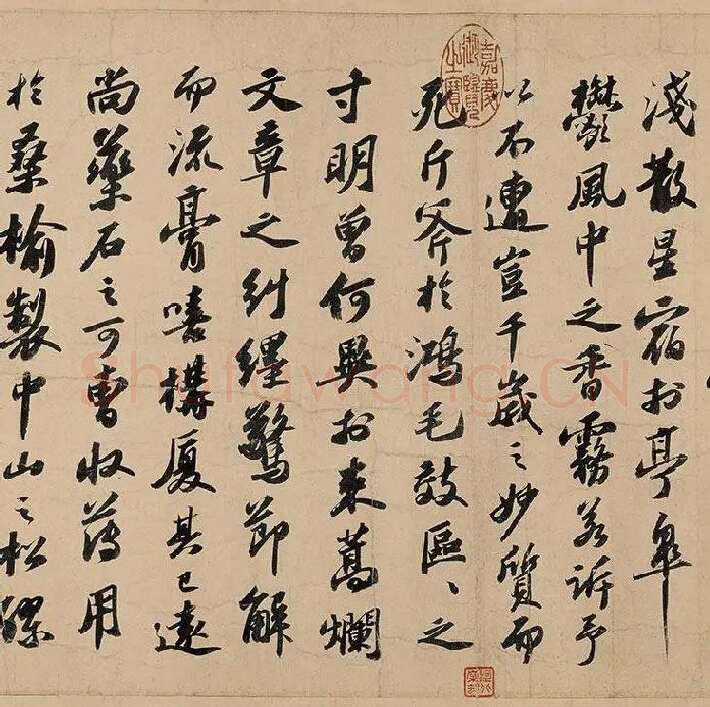 淺散星宿於亭皋
鬱風中之香霧若訴予
以不遭豈千歲之妙質而
死斤斧於鴻毛效區〻之
寸明曾何異於束蒿爛
文章之糾纆驚節解
而流膏嘻構厦其已遠
尚藥石之可曹收薄用
於桑榆製中山之松醪
嘉慶御覽之寶
Shufawang.CN